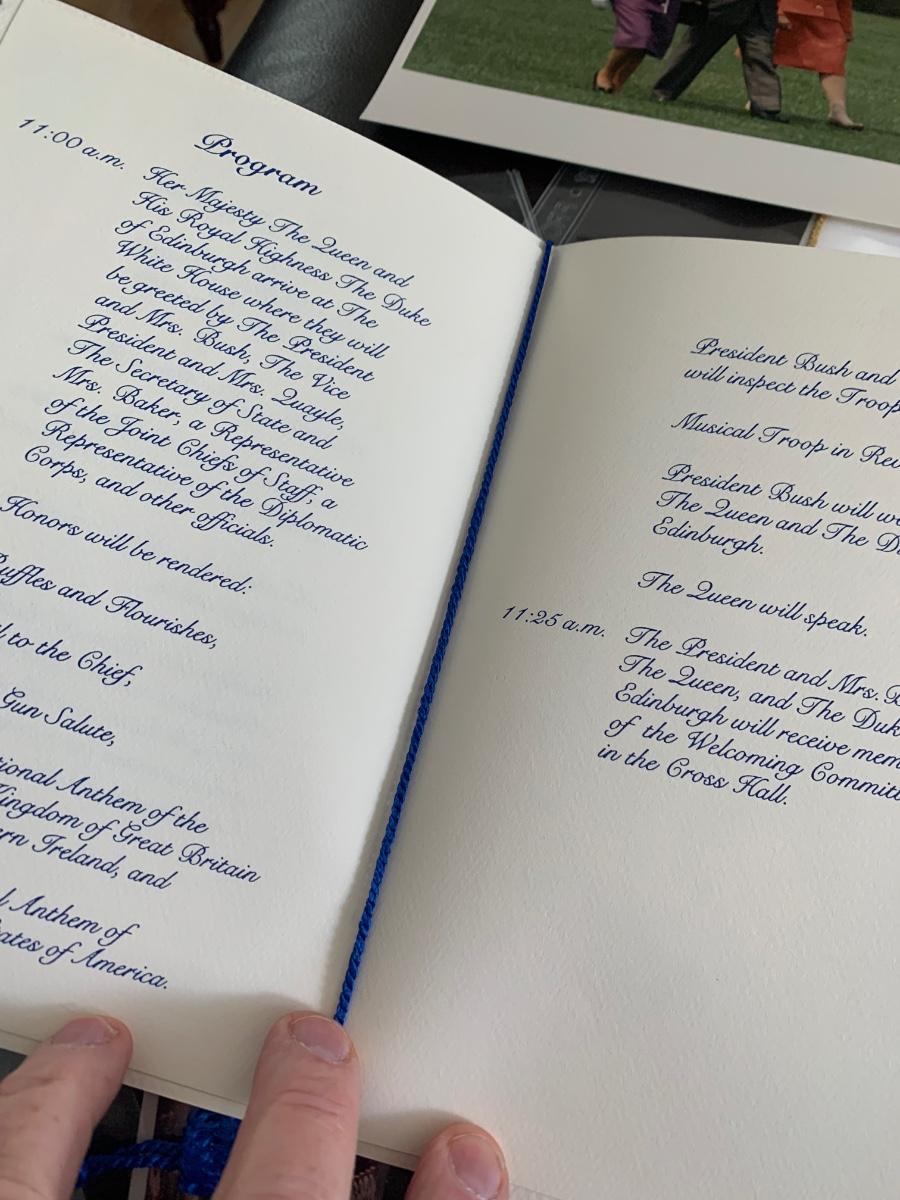 Program
11:00 a.m. Her Majesty The Queen and
His Royal Highness The Duke
of Edinburgh arrive at The
White House where they will
be greeted by The President
and Mrs. Bush, The Vice
President and Mrs. Quayle,
The Secretary of State and
Mrs. Baker, a Representative
of the Joint Chiefs of Staff, a
Representative of the Diplomatic
Corps, and other officials.
Honors will be rendered:
and Flourishes,
to the Chief,
Gun Salute,
Anthem of the
Kingdom of Great Britain
Ireland, and
Anthem of
of America.
President Bush and
will inspect the
Musical Troop in
President Bush will
The Queen and The
Edinburgh.
The Queen will speak.
11:25 a.m. The President and Mrs.
The Queen, and The
Edinburgh will receive
of the Welcoming
in the Cross Hall.